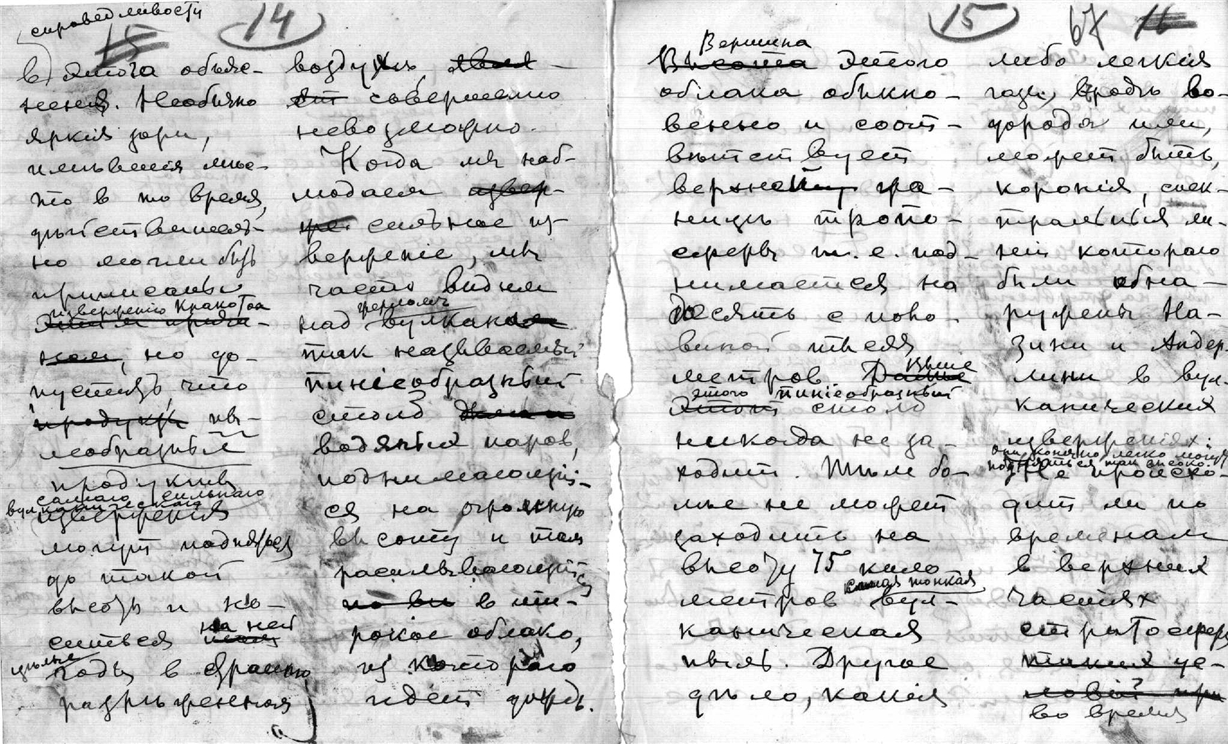 справедливости
15
14
въ этого объяс-
ненія. Необычно
яркія зори,
имѣвшія мѣс-
то в то время,
дѣйствитель-
но могли быть
приписаны
изверженію Кракатоа
но до-
пустить, что
продукты пы-
леобразный
продуктъ
самаго сильнаго
вулканическаго
изверженія
могут подняться
до такой
высоты и но-
ситься на ней
цѣлые
годы в страшно
разрѣженная
воздухъ,
совершенно
невозможно.
Когда мы наб-
людаем извер-
же сильное из-
верженіе, мы
часто видим
над вулкана
так называемый
пиніеобразный
столб
водяных паров,
поднимающій-
ся на огромную
высоту и там
расплывающійся
в ши-
рокое облако,
из котораго
идет дождь.
15
67 16
Вершина
Высота этого
облака обыкно-
венно и соот-
вѣтствует
верхней гра-
ницѣ тропо-
сферы т. е. под-
нимается на
десять с поло-
виной
метров. Дальше Выше
этого пиніеобразный
столб
никогда не за-
ходит. Тѣм бо-
лѣе не может
заходить на
высоту 75 кило-
самая тонкая
метров вул-
каническая
пыль. Другое
дѣло, какія
либо легкія
газы, вродѣ во-
дорода или,
может быть,
коронія, спек-
тральныя ли-
ніи котораго
были обна-
ружены На-
зини и Андер-
лини в вул-
канических
изверженіях:
они, конечно, легко могут
подняться так высоко.
Не происхо-
дит ли по
временам
в верхних
частях
стратосферы
во время